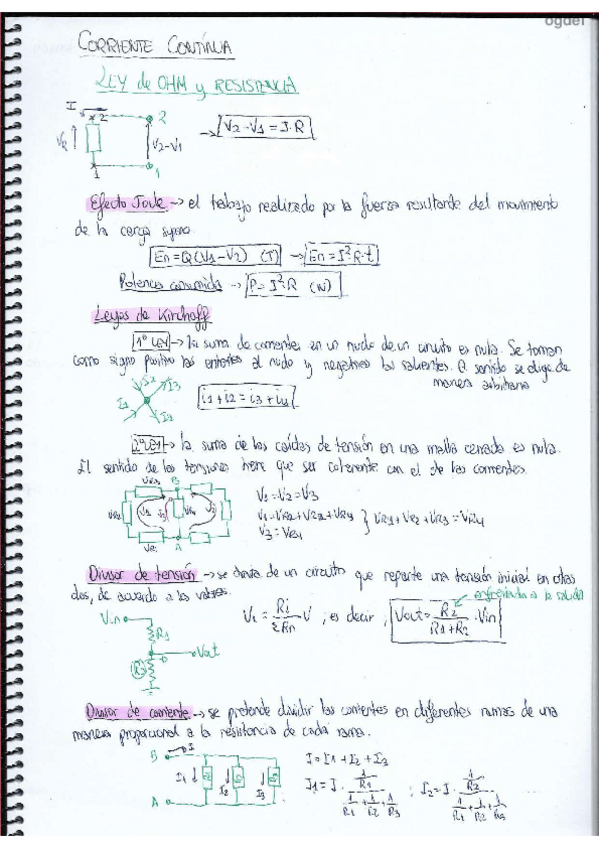 ogdei
CORRIENTE CONTÍNUA
LEY de OHM y RESISTENCIA
I
2 2
VR V2-V1 → V2-V1=I·R
1 1
Efecto Joule → el trabajo realizado por la fuerza resultante del movimiento
de la carga
En=Q(V1-V2) (J) → En=I²·R·t
Potencia consumida → P=I²·R (W)
Leyes de Kirchoff
1ª LEY → la suma de corrientes en un nudo de un circuito es nula. Se toman
como signo positivo las entrantes al nudo y negativos los salientes. El sentido se elige de
manera arbitraria
I2 I3
I1 I4
i1+i2=i3+i4
2ª LEY → la suma de las caídas de tensión en una malla cerrada es nula.
El sentido de las tensiones tiene que ser coherente con el de las corrientes.
B
V1=V2=V3
V1=VR2+VR1+VR3
V3=VR4
} VR1+VR2+VR3=VR4
A
Divisor de tensión → se trata de un circuito que reparte una tensión inicial en otras
dos, de acuerdo a los valores.
enfrentada a la salida
Vi = Ri/ΣRn V ; es decir, Vout = R2/(R1+R2) · Vin
Vin
R1
Vout
R2
Divisor de corriente → se pretende dividir las corrientes en diferentes ramas de una
manera proporcional a la resistencia de cada rama.
B I
I1 I2 I3
A
I=I1+I2+I3
I1=I· (1/R1)/(1/R1+1/R2+1/R3) ; I2=I· (1/R2)/(1/R1+1/R2+1/R3)